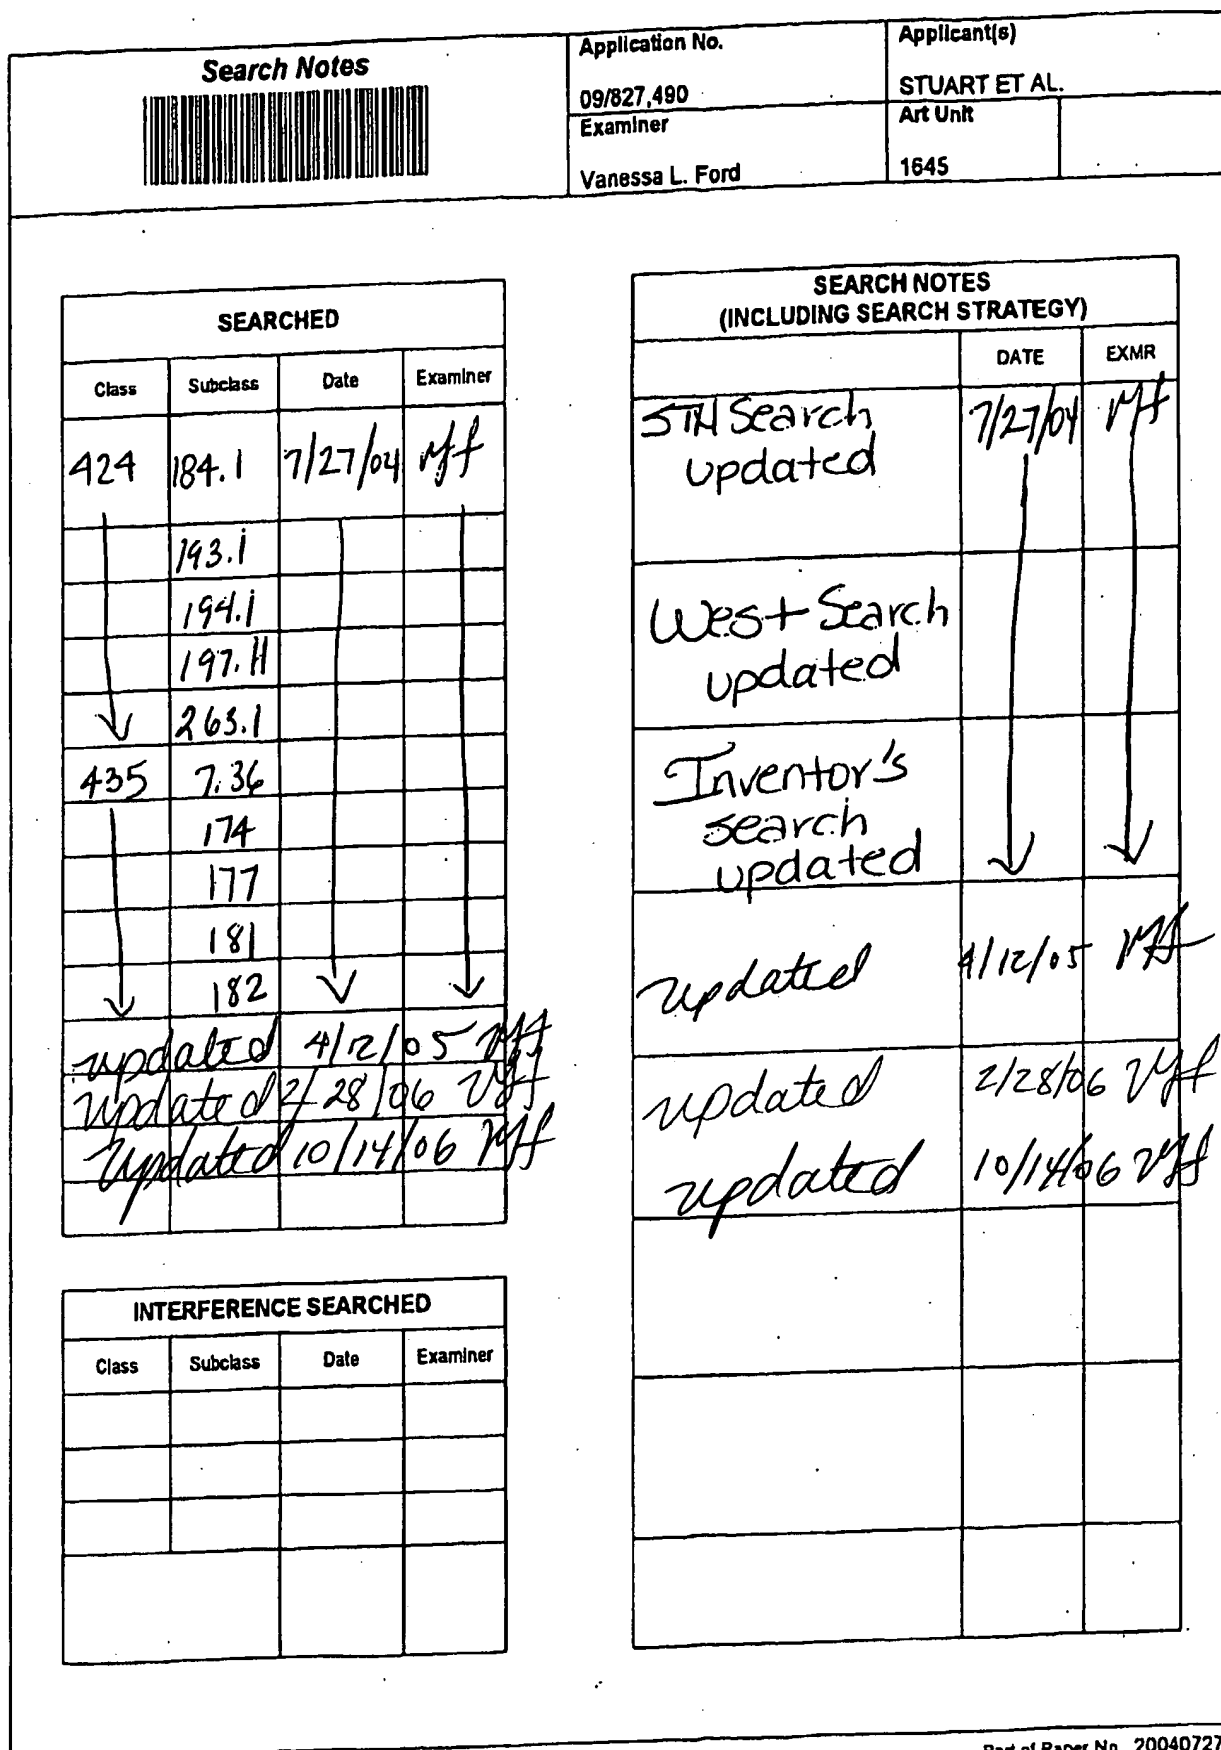 Search Notes
Application No.
09/827,490
Applicant(s)
STUART ET AL.
Examiner
Vanessa L. Ford
Art Unit
1645
SEARCHED
Class Subclass Date Examiner
424 184.1 7/27/04 vlf
193.1
194.1
197.11
263.1
435 7.36
174
177
181
182
updated 4/12/05 vlf
updated 2/28/06 vlf
updated 10/14/06 vlf
INTERFERENCE SEARCHED
Class Subclass Date Examiner
SEARCH NOTES
(INCLUDING SEARCH STRATEGY)
DATE EXMR
STN Search 7/27/04 vlf
updated
West Search
updated
Inventor's
search
updated
updated 4/12/05 vlf
updated 2/28/06 vlf
updated 10/14/06 vlf
Part of Paper No. 20040727